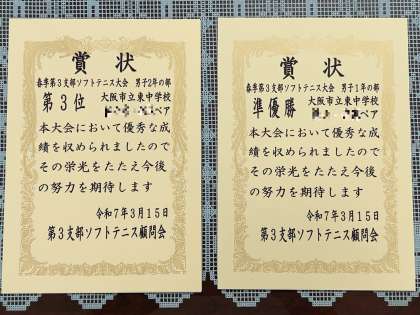 賞状
春季第3支部ソフトテニス大会 男子2年の部
第3位 大阪市立東中学校
ペア
本大会において優秀な成
績を収められましたので
その栄光をたたえ今後
の努力を期待します
令和7年3月15日
第3支部ソフトテニス顧問会
賞状
春季第3支部ソフトテニス大会 男子1年の部
準優勝 大阪市立東中学校
ペア
本大会において優秀な成
績を収められましたので
その栄光をたたえ今後
の努力を期待します
令和7年3月15日
第3支部ソフトテニス顧問会